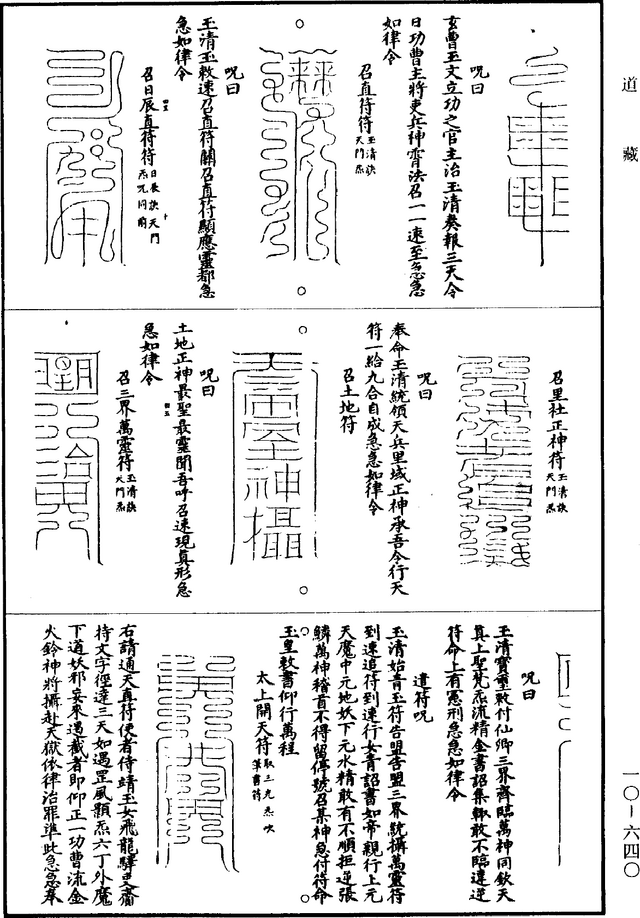 道藏
呪曰
玄曹玉文立功之官主治玉清奏報三天令
日功曹主將吏兵神霄法召一一速至急急
如律令
召直符符玉清訣天門炁
呪曰
玉清玉敕速召直符關召直符顯應靈都急
急如律令
召日辰直符符日辰訣天門炁呪同前
召里社正神符玉清訣天門炁
呪曰
奉命玉清統領天兵里域正神承吾令行天
符一給九合自成急急如律令
召土地符
呪曰
土地正神最聖最靈聞吾呼召速現真形急
急如律令
召三界萬靈符玉清訣天門炁
呪曰
玉清寶璽敕付仙卿三界齊臨萬神同欽天
真上聖梵炁流精金書詔集輙敢不臨違逆
符命上有憲刑急急如律令
遣符呪
玉清始青玉符告盟告盟三界統攝萬靈符
到速追符到速行女青詔書如帝親行上元
天魔中元地妖下元水精敢有不順拒逆張
鱗萬神稽首不得留停號召某神急付符命
玉皇敕書仰行萬程
太上開天符取三九炁吹筆書符
右請通天真符使者侍靖玉女飛龍驛吏齎
持文字徑達三天如遇罡風顥炁六丁外魔
下道妖邪妄來遏截者即仰正一功曹流金
火鈴神將攝赴天獄依律治罪準此急急奉
一〇-六四〇